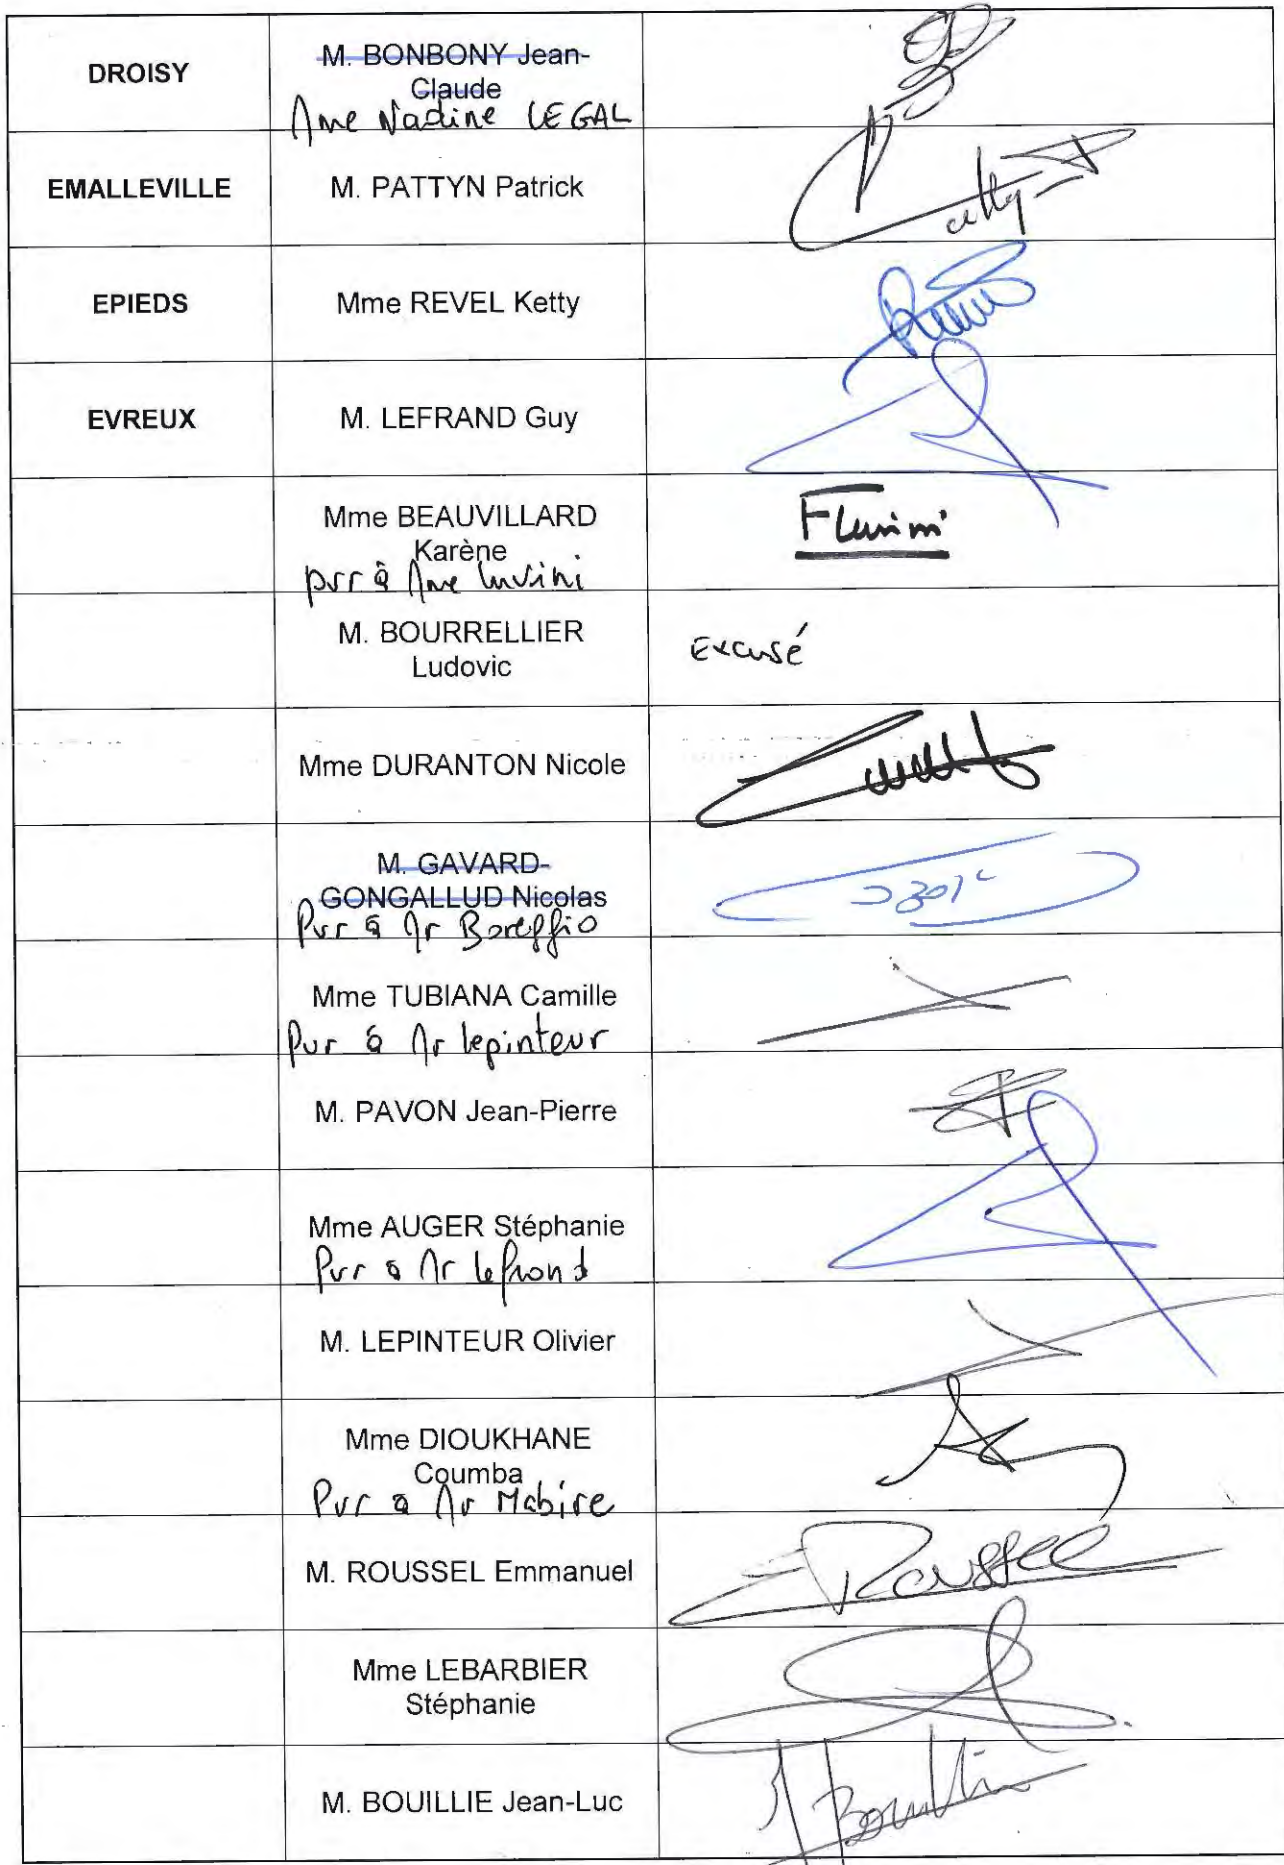 DROISY
M. BONBONY Jean-
Claude
Mme Nadine LE GAL
EMALLEVILLE
M. PATTYN Patrick
EPIEDS
Mme REVEL Ketty
EVREUX
M. LEFRAND Guy
Mme BEAUVILLARD
Karène
pvr à Mme Luvini
FLuvini
M. BOURRELLIER
Ludovic
Excusé
Mme DURANTON Nicole
M. GAVARD-
GONGALLUD Nicolas
Pvr à Mr Boreggio
Mme TUBIANA Camille
Pvr à Mr lepinteur
M. PAVON Jean-Pierre
Mme AUGER Stéphanie
Pvr à Mr lefrand
M. LEPINTEUR Olivier
Mme DIOUKHANE
Coumba
Pvr à Mr Mabire
M. ROUSSEL Emmanuel
Roussel
Mme LEBARBIER
Stéphanie
M. BOUILLIE Jean-Luc